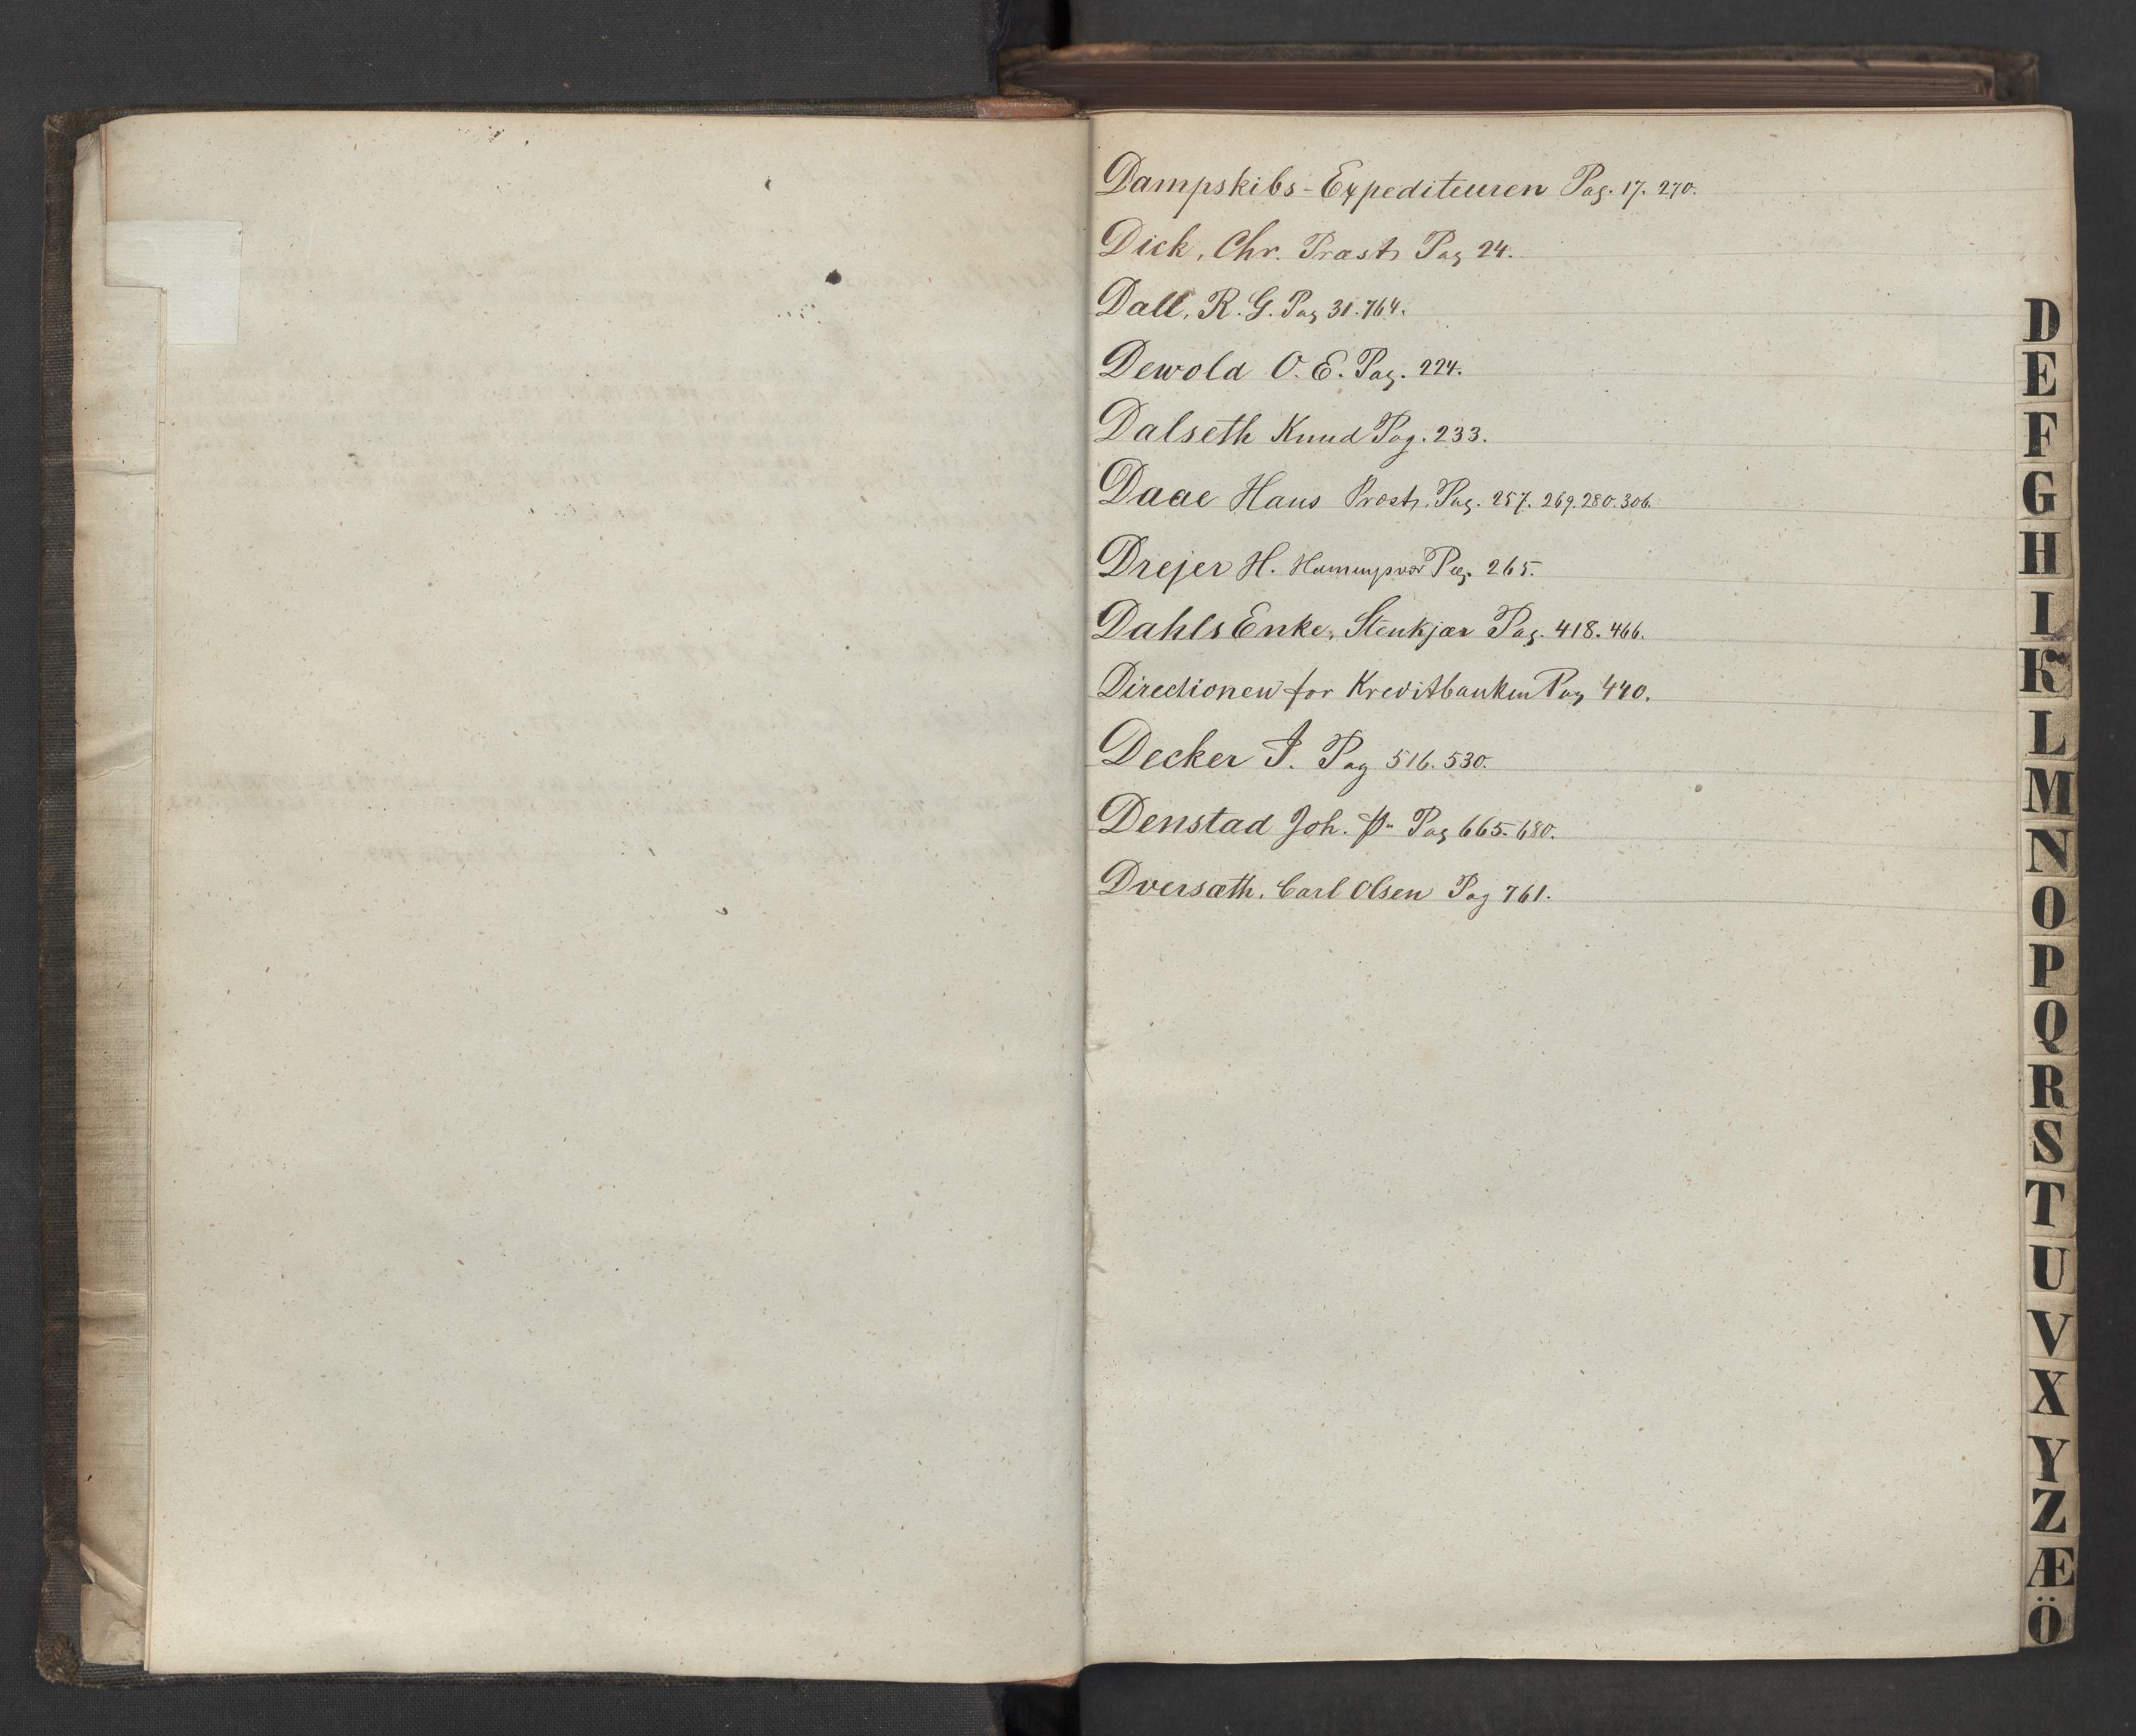 Dampskibs-Expediteuren Pag. 17. 270.
Dick, Chr. Præst, Pag 24.
Dall, R. G. Pag 31. 764.
Dewold O. E. Pag. 224.
Dalseth Knud Pag. 233.
Daae Hans Provst, Pag. 257. 269. 280. 306.
Drejer H. Pag. 265.
Dahls Enke, Stenkjær Pag. 418. 466.
Directionen for Kreditbanken Pag 440.
Decker J. Pag 516. 530.
Denstad Joh. P. Pag 665. 680.
Dversæth, Carl Olsen Pag 761.
D
E
F
G
H
I
K
L
M
N
O
P
Q
R
S
T
U
V
X
Y
Z
Æ
Ö